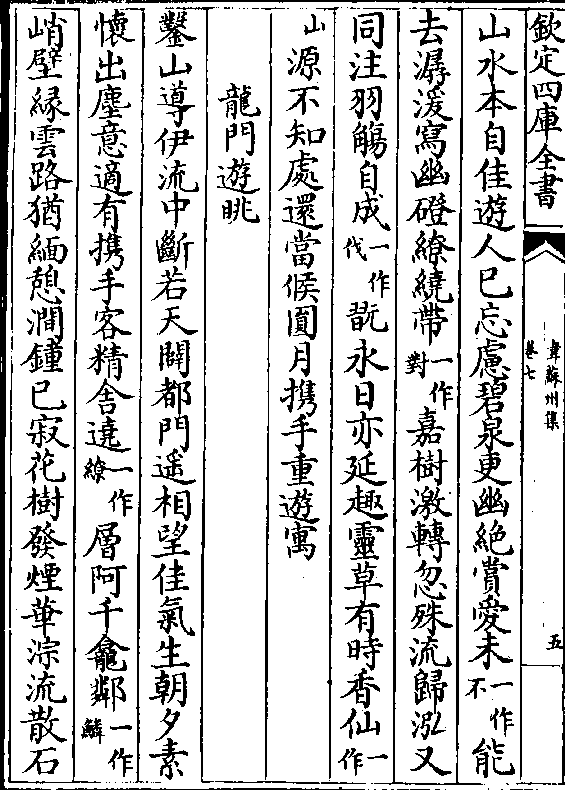 欽定四庫全書
韋蘇州集
卷七
五
山水本自佳遊人已忘慮碧泉更幽絶賞愛未一作不能
去潺湲寫幽磴繚繞帶一作對嘉樹激轉忽殊流歸泓又
同注羽觴自成一作伐翫永日亦延趣靈草有時香仙一作
山源不知處還當候圓月携手重遊寓
龍門遊眺
鑿山導伊流中斷若天闢都門遥相望佳氣生朝夕素
懷出塵意適有携手客精舍遶一作繚層阿千龕鄰一作鱗
峭壁緣雲路猶緬憩澗鐘已寂花樹發煙華淙流散石